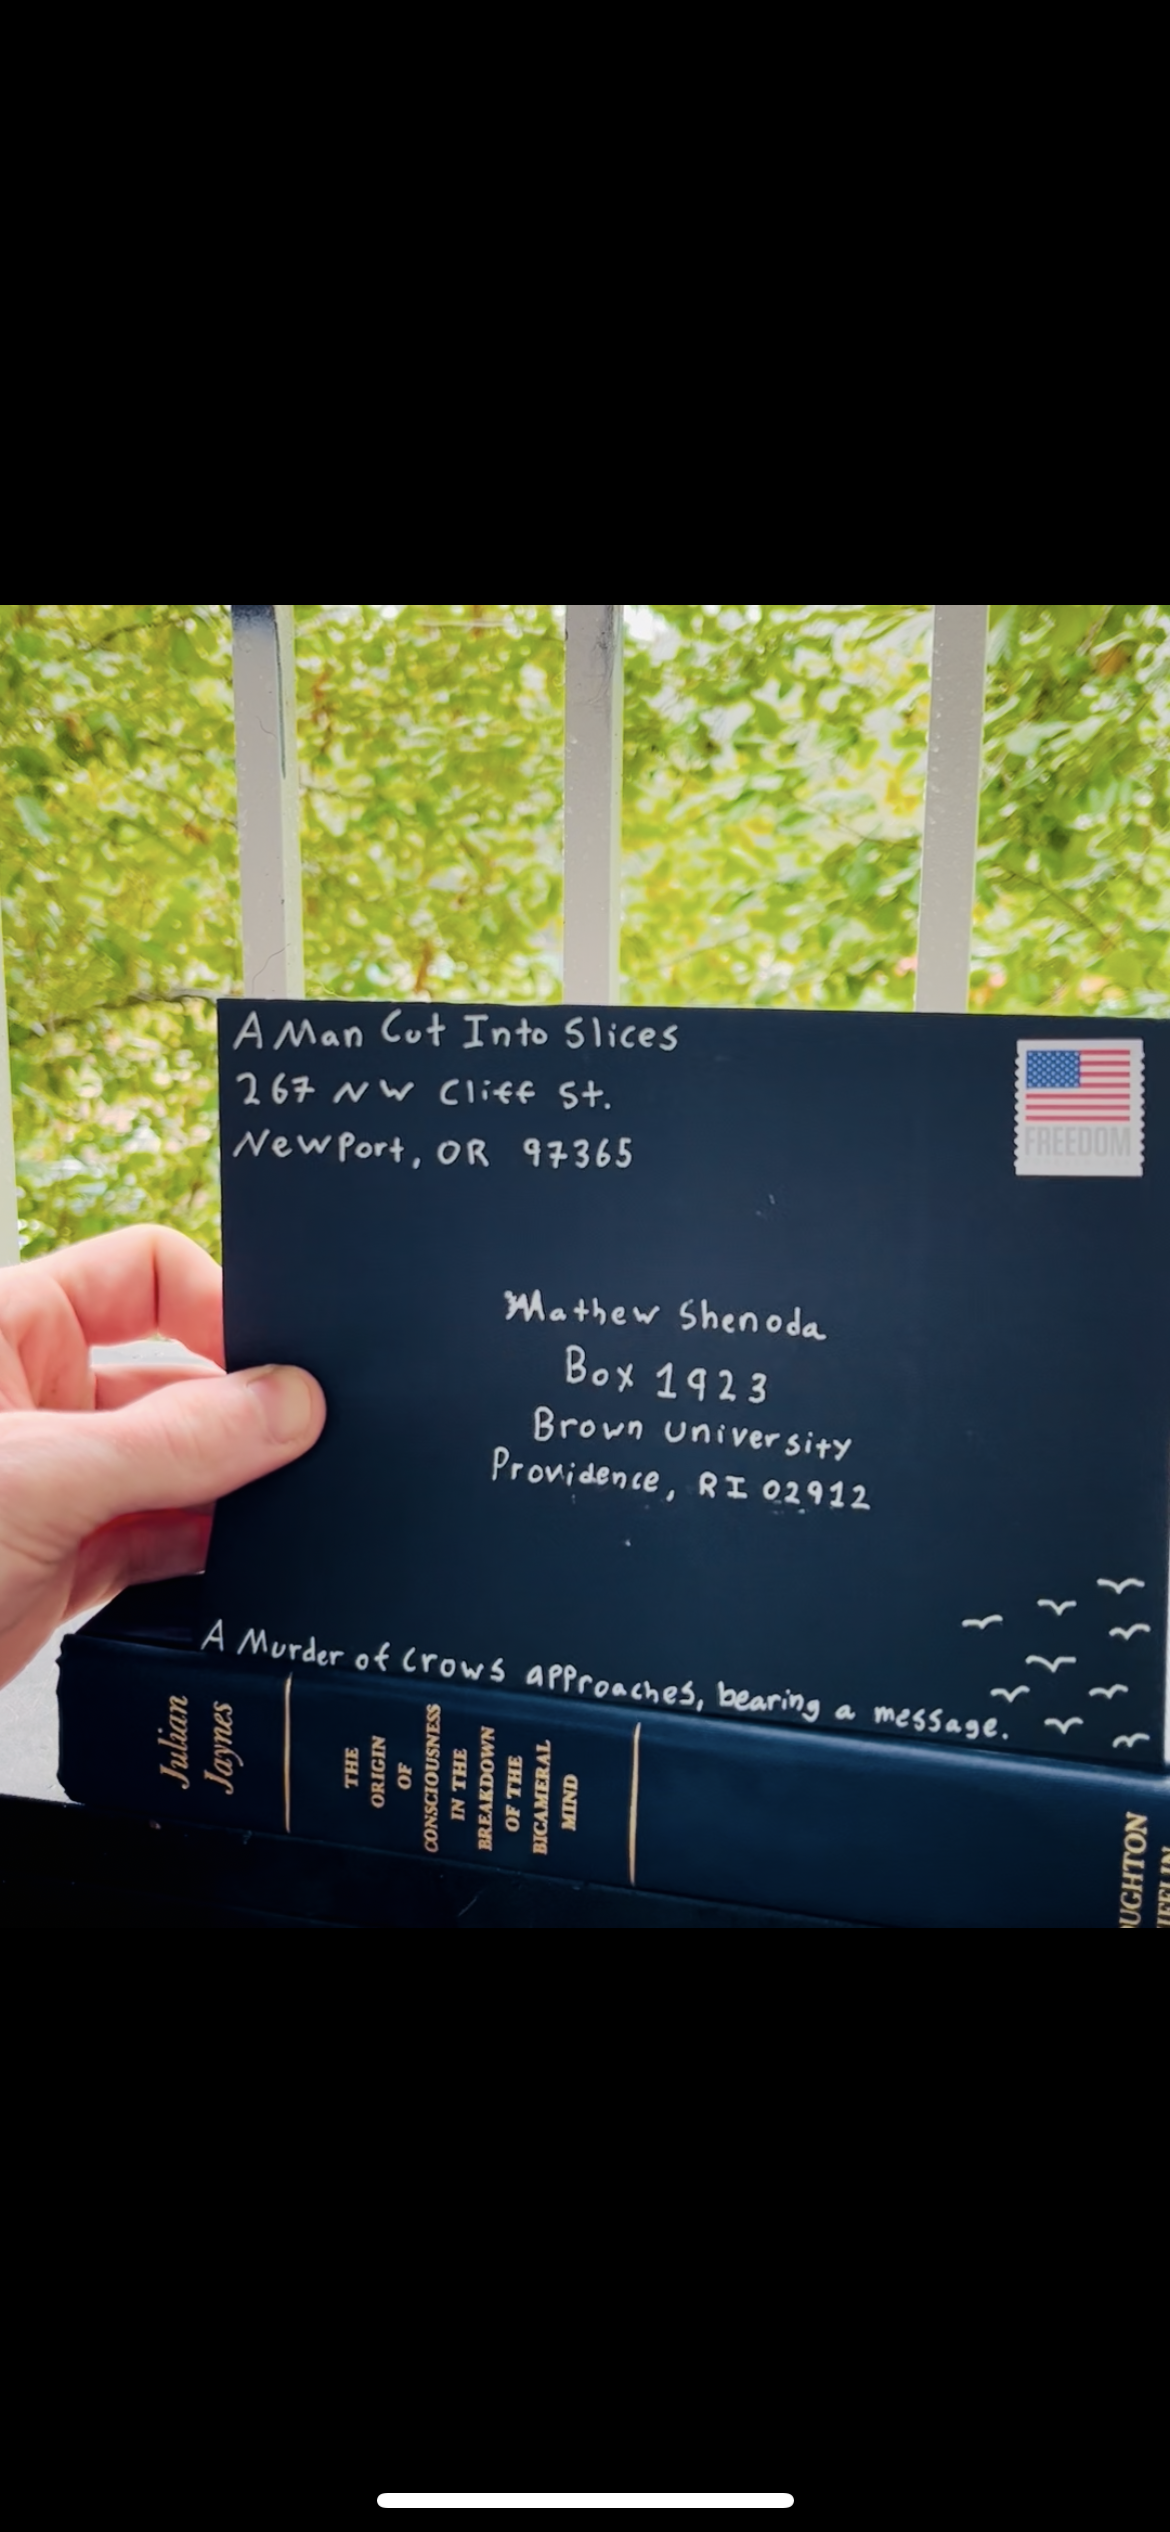 A Man Cut Into Slices
267 NW Cliff St.
Newport, OR 97365
FREEDOM
Mathew Shenoda
Box 1923
Brown University
Providence, RI 02912
A Murder of Crows approaches, bearing a message.
Julian
Jaynes
THE
ORIGIN
OF
CONSCIOUSNESS
IN THE
BREAKDOWN
OF THE
BICAMERAL
MIND